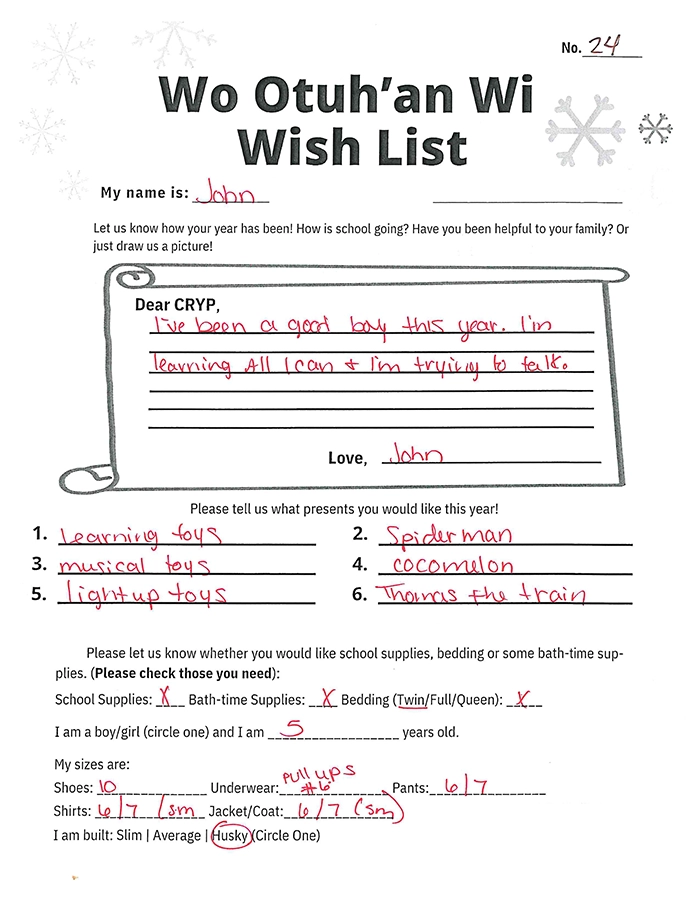 No. 24
Wo Otuh'an Wi
Wish List
My name is: John
Let us know how your year has been! How is school going? Have you been helpful to your family? Or
just draw us a picture!
Dear CRYP,
I've been a good boy this year. I'm
learning All I can + I'm trying to talk.
Love, John
Please tell us what presents you would like this year!
1. Learning toys 2. Spiderman
3. musical toys 4. cocomelon
5. light up toys 6. Thomas the train
Please let us know whether you would like school supplies, bedding or some bath-time sup-
plies. (Please check those you need):
School Supplies: X Bath-time Supplies: X Bedding (Twin/Full/Queen): X
I am a boy/girl (circle one) and I am 5 years old.
My sizes are:
Shoes: 10 Underwear: Pull ups #6 Pants: 6/7
Shirts: 6/7 (sm Jacket/Coat: 6/7 (sm)
I am built: Slim | Average | Husky (Circle One)